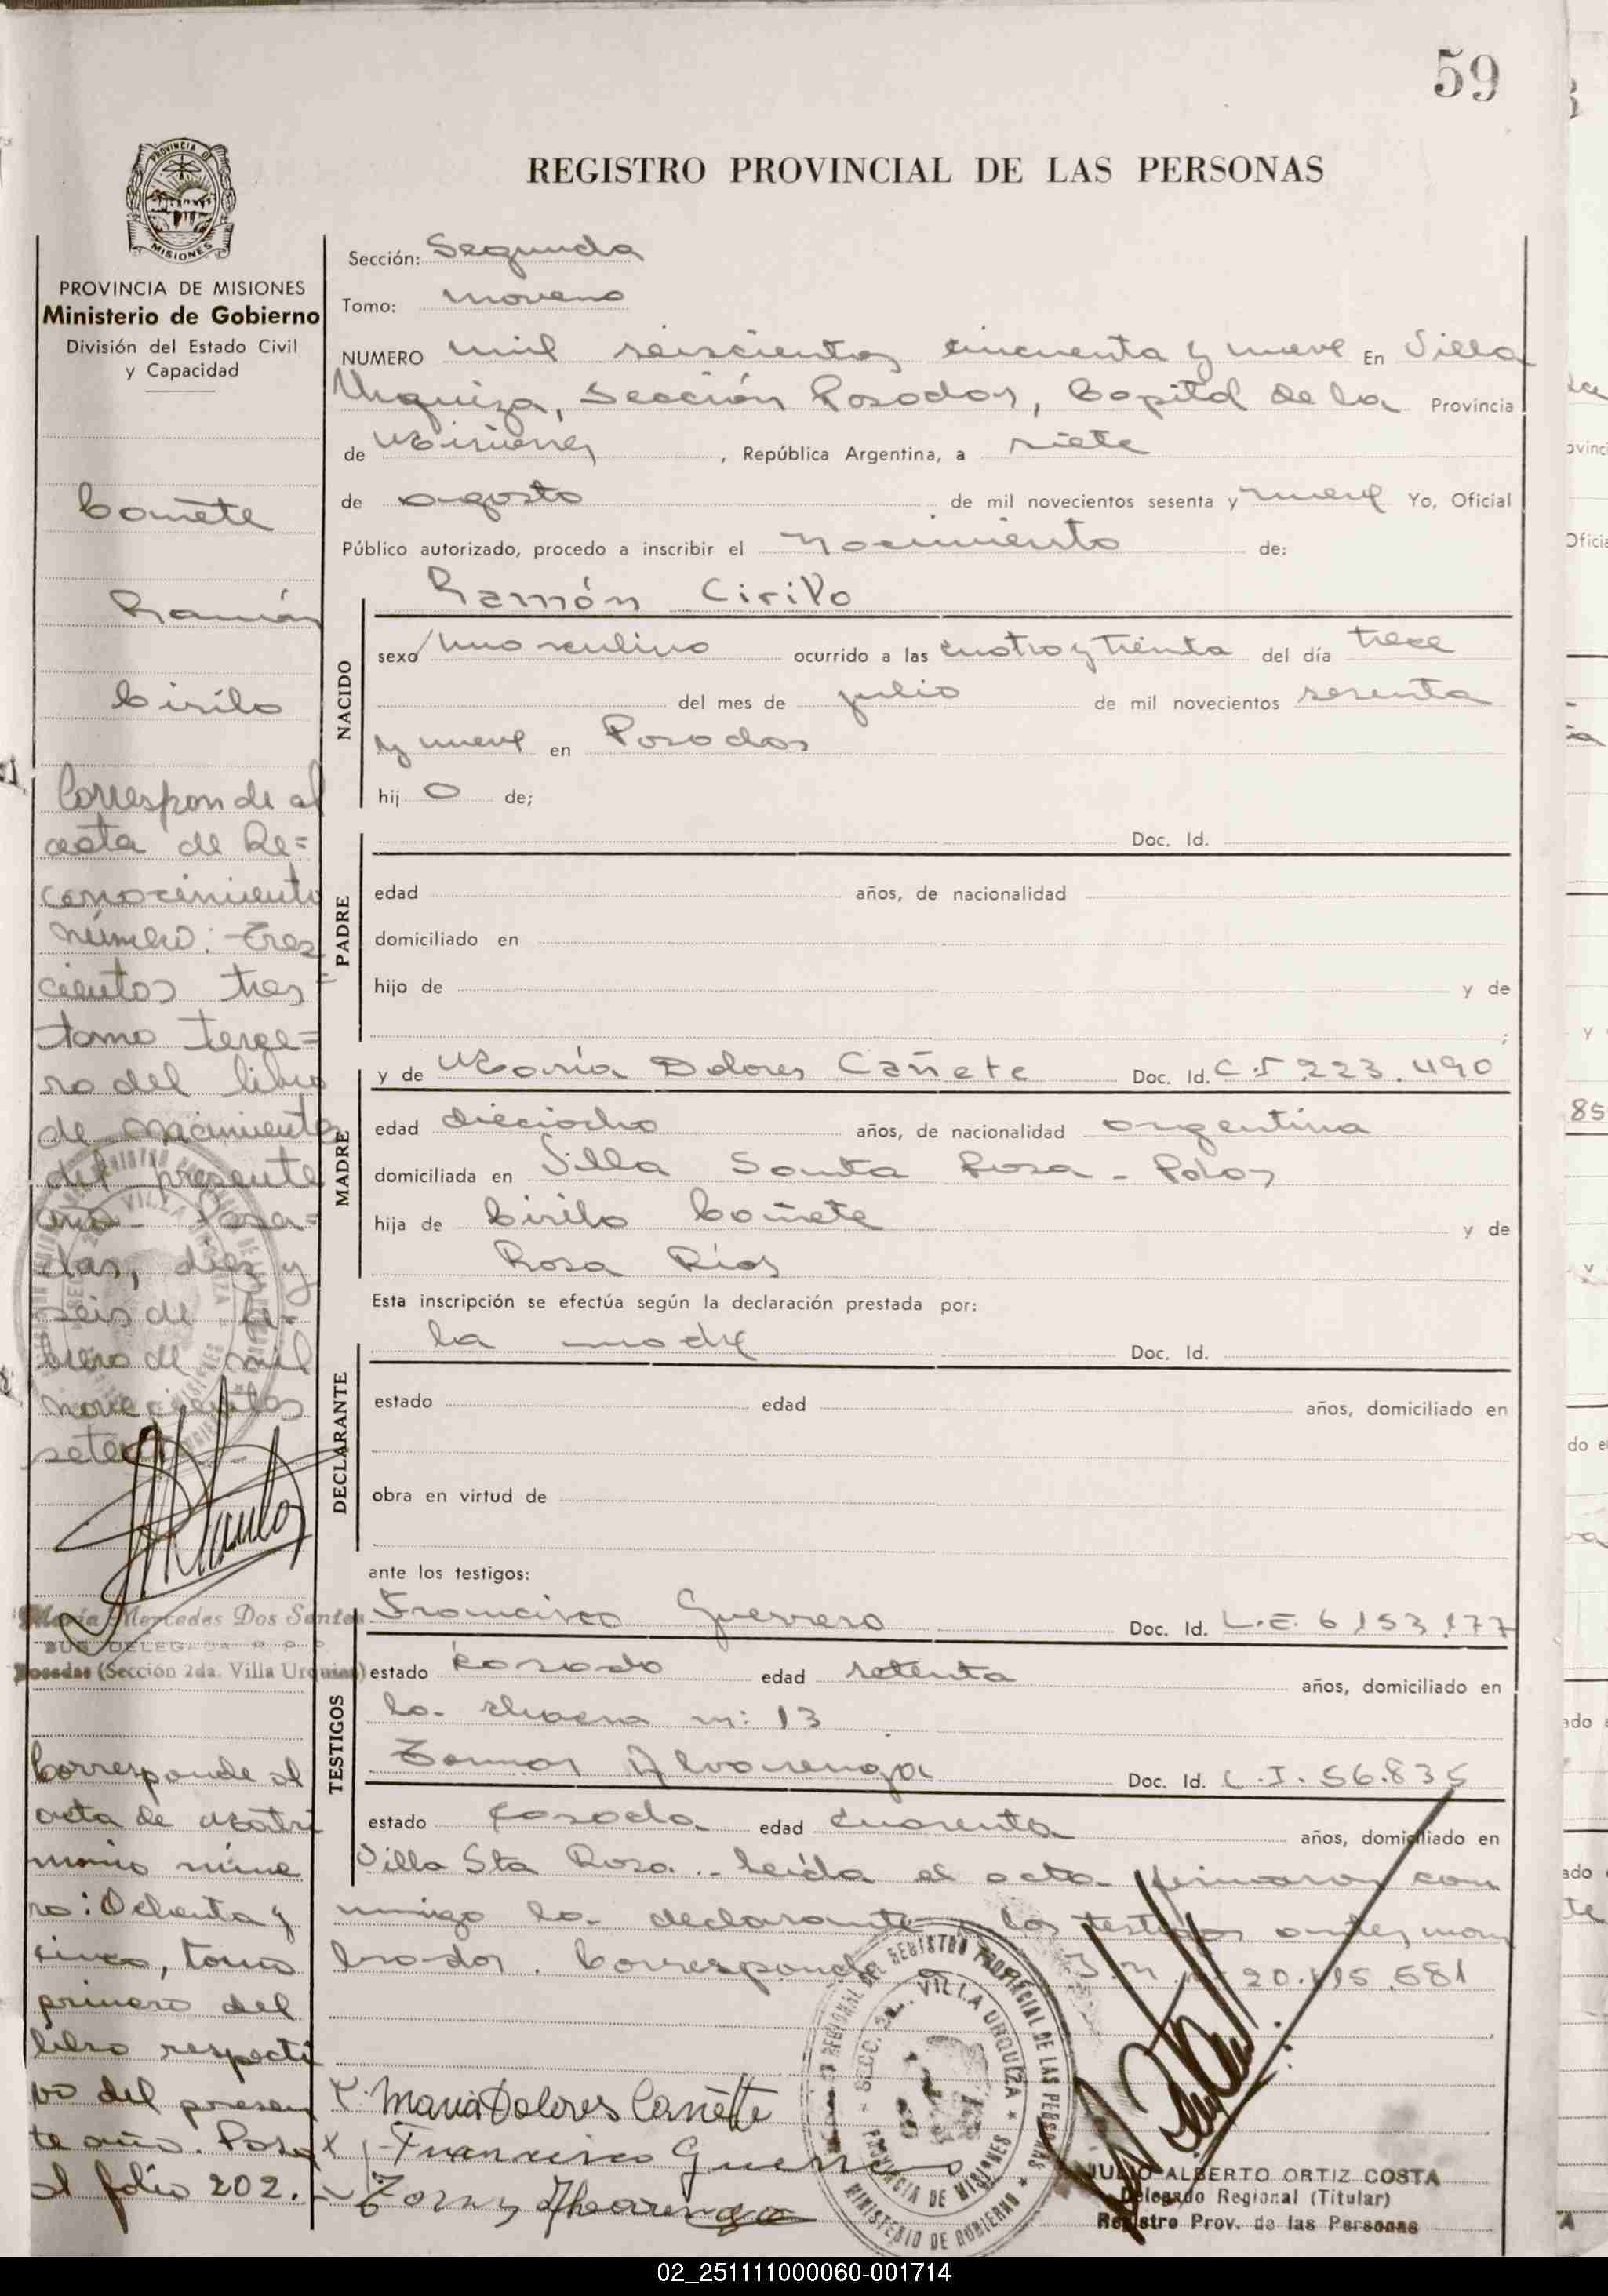 59
REGISTRO PROVINCIAL DE LAS PERSONAS
PROVINCIA DE MISIONES
Ministerio de Gobierno
División del Estado Civil
y Capacidad
Cañete
Ramón
Cirilo
Corresponde al
acta de Re=
conocimiento
número: Tres
cientos tres=
tomo terce=
ro del libro
de nacimiento
del presente
año - Posa=
das, diez y
seis de fe-
brero de mil
novecientos
setenta
María Mercedes Dos Santos
SUB DELEGADA R. P. P.
Posadas (Sección 2da. Villa Urquiza)
Corresponde al
acta de Matri
monio núme
ro: Ochenta y
cinco, tomo
primero del
libro respecti
vo del presen
te año. Posa
al folio 202.
Sección: Segunda
Tomo: noveno
NUMERO mil seiscientos cincuenta y nueve En Villa
Urquiza, Sección Posadas, Capital de la Provincia
de Misiones, República Argentina, a siete
de agosto de mil novecientos sesenta y nueve Yo, Oficial
Público autorizado, procedo a inscribir el nacimiento de:
Ramón Cirilo
NACIDO
sexo masculino ocurrido a las cuatro y treinta del día trece
del mes de julio de mil novecientos sesenta
y nueve en Posadas
hijo de;
PADRE
Doc. Id.
edad años, de nacionalidad
domiciliado en
hijo de y de
;
MADRE
y de María Dolores Cañete Doc. Id. C.I 223.490
edad dieciocho años, de nacionalidad argentina
domiciliada en Villa Santa Rosa - Pdas
hija de Cirilo Cañete y de
Rosa Ríos
Esta inscripción se efectúa según la declaración prestada por:
DECLARANTE
la madre Doc. Id.
estado edad años, domiciliado en
obra en virtud de
ante los testigos:
TESTIGOS
Francisco Guerrero Doc. Id. L.E. 6153177
estado casado edad setenta años, domiciliado en
la chacra n: 13
Alvarenga Doc. Id. C.I. 56.835
estado casada edad cuarenta años, domiciliado en
Villa Sta Rosa.- leída el acta firmaron con
migo la declarante y los testigos antes nom
brados. Corresponde
María Dolores Cañete
Francisco Guerrero
REGIONAL DEL REGISTRO PROVINCIAL DE LAS PERSONAS
SECC. 2a. VILLA URQUIZA
PROVINCIA DE MISIONES
MINISTERIO DE GOBIERNO
JULIO ALBERTO ORTIZ COSTA
Delegado Regional (Titular)
Registro Prov. de las Personas
02_251111000060-001714